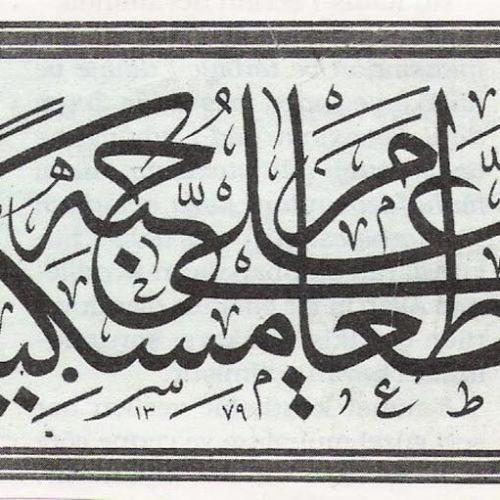 طعام على حبه مسكي
١٣٧٩